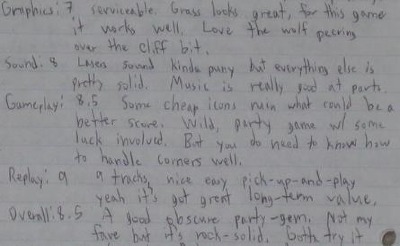 Graphics: 7 serviceable. Grass looks great, for this game
it works well. Love the wolf peering
over the cliff bit.
Sound: 8 Lasers sound kinda puny but everything else is
pretty solid. Music is really good at parts.
Gameplay: 8.5 Some cheap icons ruin what could be a
better score. Wild, party game w/ some
luck involved. But you do need to know how
to handle corners well.
Replay: 9 9 tracks, nice easy pick-up-and-play
yeah it's got great long-term value.
Overall: 8.5 A good obscure party-gem. Not my
fave but it's rock-solid. Both try it